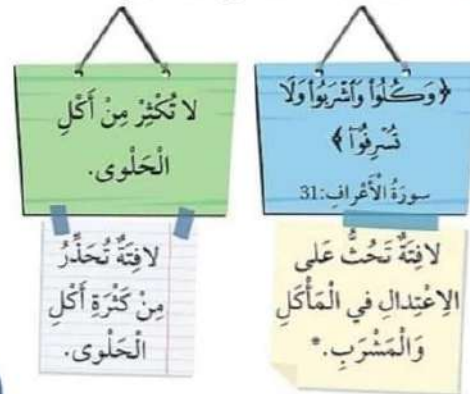 ﴿وَكُلُوا۟ وَٱشْرَبُوا۟ وَلَا
تُسْرِفُوٓا۟﴾
سورَةُ الْأَعْرافِ:31
لافِتَةٌ تَحُثُّ عَلى
الِاعْتِدالِ في الْمَأْكَلِ
وَالْمَشْرَبِ.*
لا تُكْثِرْ مِنْ أَكْلِ
الْحَلْوى.
لافِتَةٌ تُحَذِّرُ
مِنْ كَثْرَةِ أَكْلِ
الْحَلْوى.